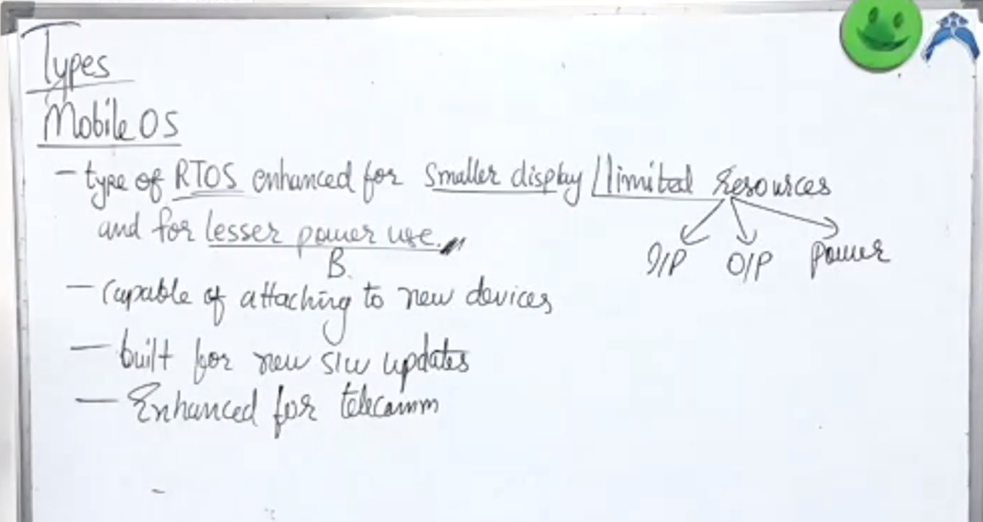 Types
Mobile OS
- type of RTOS enhanced for smaller display / limited resources
I/P O/P power
and for lesser power use.
B.
- capable of attaching to new devices
- built for new s/w updates
- Enhanced for telecomm